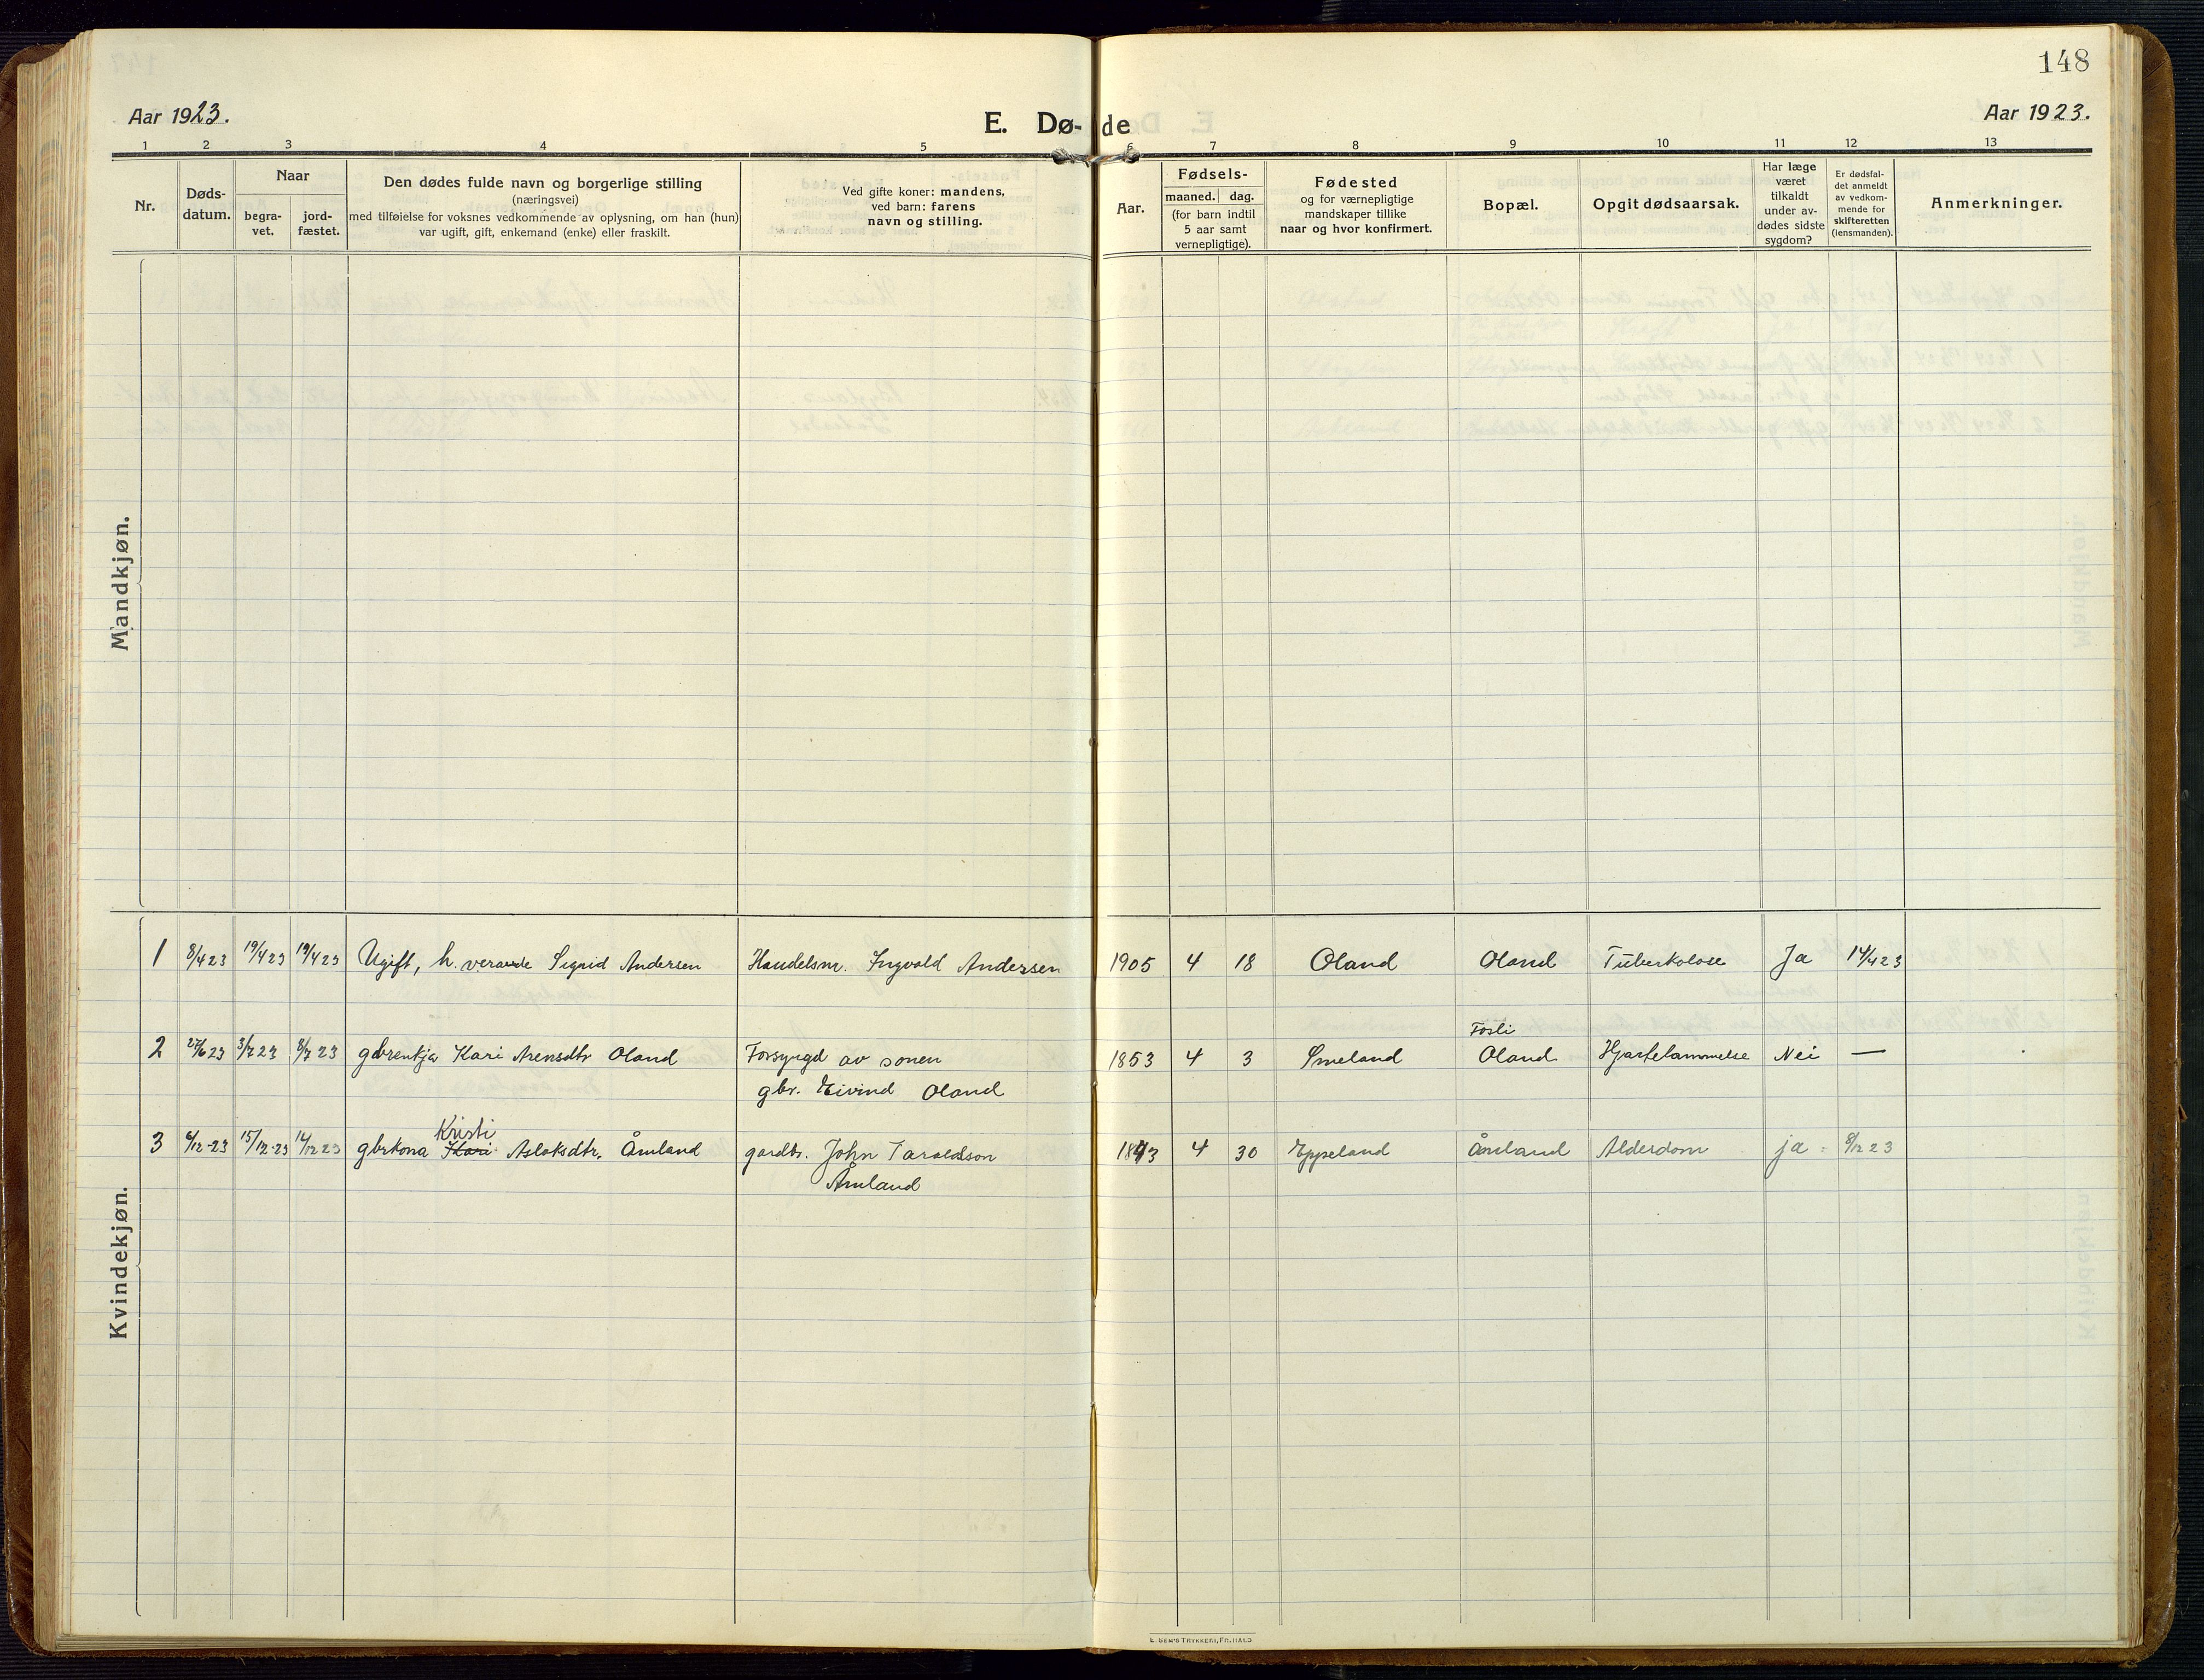 148
Aar 1923.
E. Dø- de
Aar 1923.
1 2 3 4 5 6 7 8 9 10 11 12 13
Nr.
Døds-
datum.
Naar
begra-
vet.
jord-
fæstet.
Den dødes fulde navn og borgerlige stilling
(næringsvei)
med tilføielse for voksnes vedkommende av oplysning, om han (hun)
var ugift, gift, enkemand (enke) eller fraskilt.
Ved gifte koner: mandens,
ved barn: farens
navn og stilling.
Aar.
Fødsels-
maaned. dag.
(for barn indtil
5 aar samt
vernepligtige).
Fødested
og for værnepligtige
mandskaper tillike
naar og hvor konfirmert.
Bopæl.
Opgit dødsaarsak.
Har læge
været
tilkaldt
under av-
dødes sidste
sygdom?
Er dødsfal-
det anmeldt
av vedkom-
mende for
skifteretten
(lensmanden).
Anmerkninger.
Mandkjøn.
Kvindekjøn.
1 8/4 23 19/4 23 19/4 23 Ugift, h. verande Sigrid Andersen Handelsm. Ingvald Andersen 1905 4 18 Oland Oland Tuberkolose Ja 14/4 23
Fosli
2 27/6 23 3/7 23 8/7 23 gbrenkja Kari Arensdtr Oland Forsyrgd av sonen 1853 4 3 Smeland Oland Hjartelammelse Nei —
gbr. Eivind Oland
Kristi
3 6/12-23 15/12-23 16/12 23 gbrkona Kari Aslaksdtr. Åmland gardbr. John Taraldsson 1843 4 30 Eppeland Åmland Alderdom ja 8/12 23
Åmland